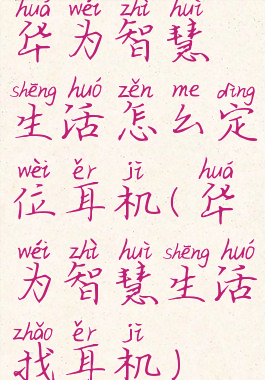 huá wéi zhì huì
华为智慧
shēng huó zěn me dìng
生活怎么定
wèi ěr jī huá
位耳机(华
wéi zhì huì shēng huó
为智慧生活
zhǎo ěr jī
找耳机)